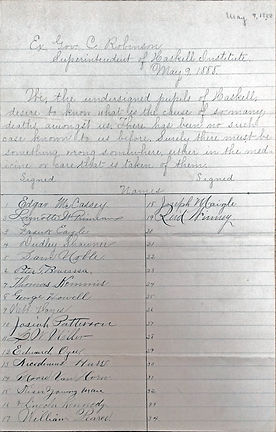 May 9, 1888
Ex Gov. C. Robinson
Superintendent of Haskell Institute
May 9, 1888.
We, the undersigned pupils of Haskell,
desire to know what is the cause of so many
deaths amongst us. There has been no such
case known to us before. Surely there must be
something wrong somewhere, either in the med-
icine or care that is taken of them.
Signed Signed
Names
1 Edgar McCassey 18 Joseph Mangle
2 19 Reid Winney
3 Frank Eagle 20
4 Dudley Shawnee 21
5 Sam Noble 22
6 23
7 Thomas 24
8 George Howell 25
9 26
10 Josiah Patterson 27
11 28
12 Edward 29
13 30
14 Van Horn 31
15 32
16 Lincoln Kennedy 33
17 William 34